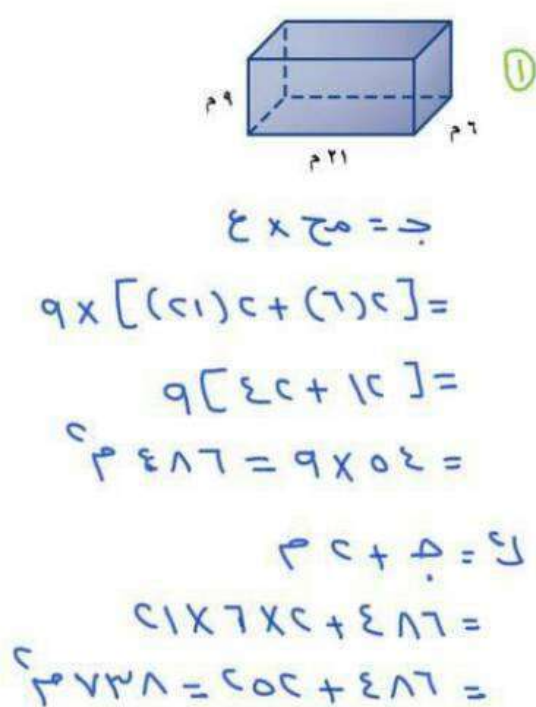 ١
٩ م
٦ م
٢١ م
جـ = مح × ع
= [٢(٦) + ٢(٢١)] × ٩
= [١٢ + ٤٢] ٩
= ٥٤ × ٩ = ٤٨٦ م٢
ك = جـ + ٢ م
= ٤٨٦ + ٢×٦×٢١
= ٤٨٦ + ٢٥٢ = ٧٣٨ م٢